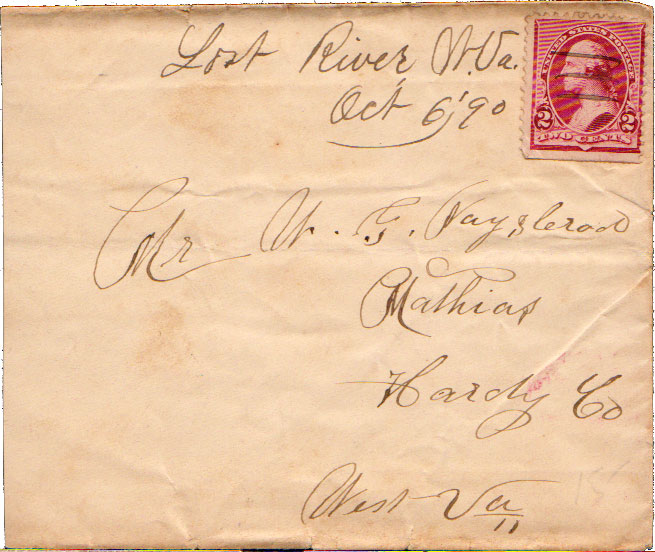 Lost River, W. Va.
Oct 6, '90
UNITED STATES POSTAGE
2 2
TWO CENTS
Mr W. F.
Mathias
Hardy Co
West Va
15